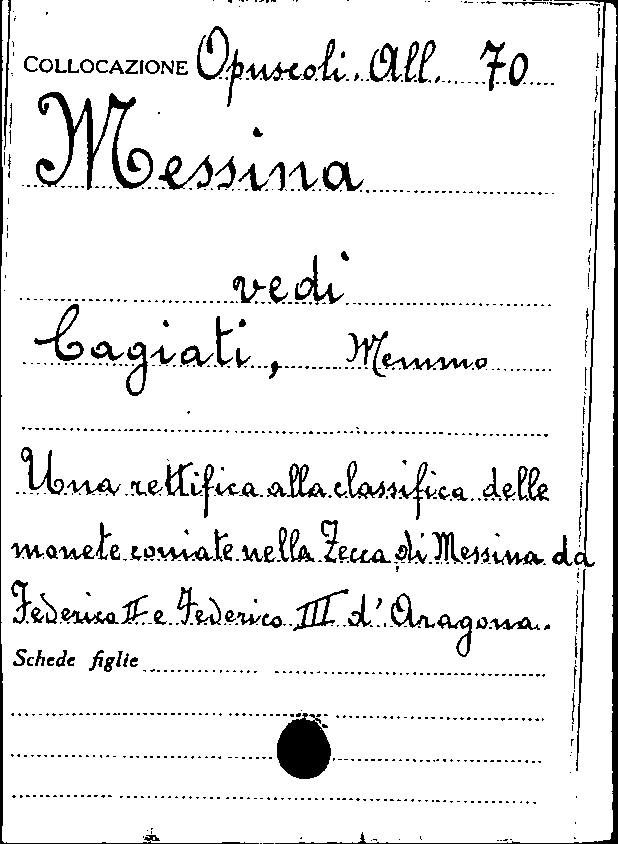 COLLOCAZIONE Opuscoli. All. 70
Messina
vedi
Cagiati, Memmo
Una rettifica alla classifica delle
monete coniate nella Zecca di Messina da
Federico II e Federico III d'Aragona.
Schede figlie